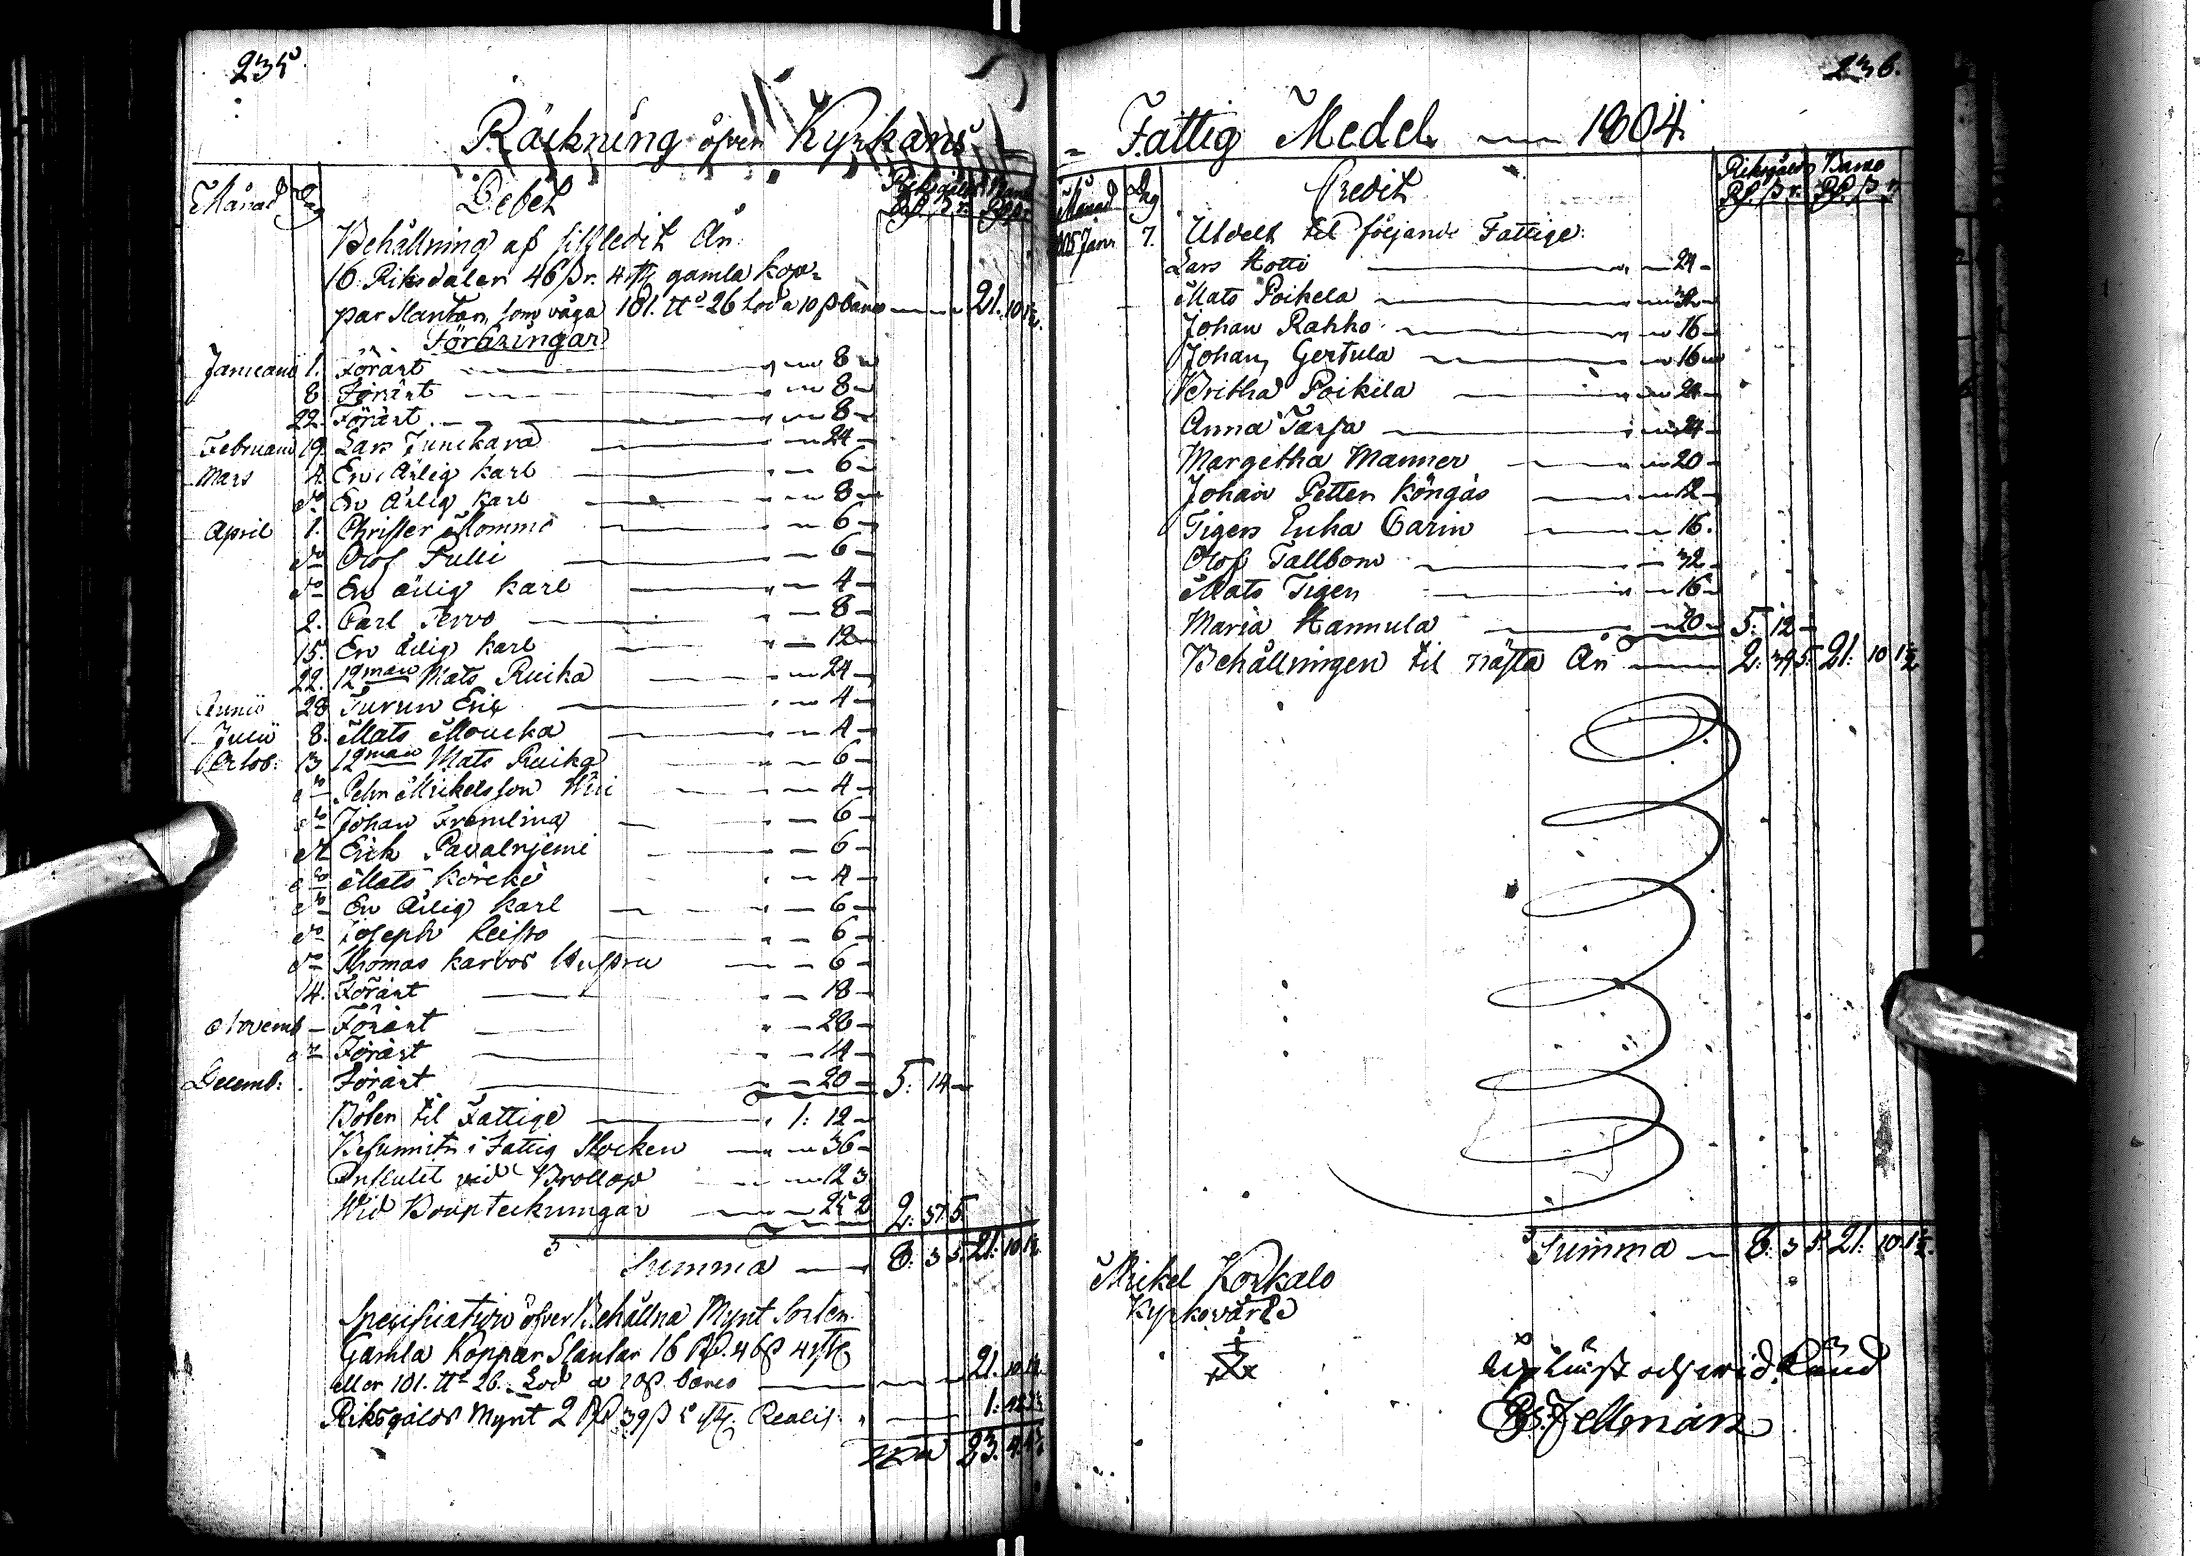 235
Räckning öfver Kyrkans
Månad Dag Debet Riksgälds Banco
Rd. ß r. Rd. ß r
Behållning af sistledit År
16 Riksdaler 46 ßr. 4 gamla kop-
par slantar, som väga 181. ℔ 26 lod a 10 ß banco 21. 10 1½.
Föräringar
Januarii 1. Förärt 8
8 Förärt 8
22. Förärt 8
Februarii 19. Lars Junckara 24
Mars 4. En ärlig karl 6
do En ärlig karl 8
April 1. Christer Mommo 6
do Olof Pulli 6
do En ärlig karl 4
2. Carl Tervo 8
15. En ärlig karl 12
22. 12man Mats Ruika 24
Junii 28 Turun Eric 4
Julii 8. Mats Moucka 4
Octob: 13 12man Mats Ruika 6
do Pehr Mickelsson 4
do Johan Fremling 6
do Erik Pavalnjemi 6
do Mats Körckö 4
do En ärlig karl 6
do Joseph Keisto 6
do Thomas Karvos Hustru 6
14. Förärt 18
Novemb Förärt 28
do Förärt 14
Decemb: Förärt 20 5: 14
Böter til Fattige 1: 12
Befunnits i Fattig Stocken 36
Influtit vid Bröllop 12 3
Wid Boupteckningar 25 2 2: 37 5
Summa 8: 3 5. 21: 10 1½
Specification öfver Behållna Mynt Sorter
Gamla Koppar Slantar 16 Rd. 46ß 4
eller 181. ℔ 26. Lod a 10ß banco 21. 10 1½
Riksgälds Mynt 2 Rd 39ß 5 1:
23.
236.
Fattig Medel 1804.
Månad Dag Credit Riksgälds Banco
Rd. ß r. Rd. ß r
1805 Janr 7. Utdelt til följande Fattige:
Lars Hotti 24
Mats Poikela 32
Johan Rahko 16
Johan Gertula 16
Britha Poikila 24
Anna Tarsa 24
Margetha Manner 20
Johan Petter Köngäs 12
Tigers Enka Carin 16.
Olof Tallbom 32
Mats Tiger 16
Maria Hannula 20 5: 12
Behållningen til nästa År 2: 39 5: 21: 10 1½
Summa 8: 3 5 21: 10. 1½.
Mickel Korkalo
Kyrkovärd
Esº Fellman